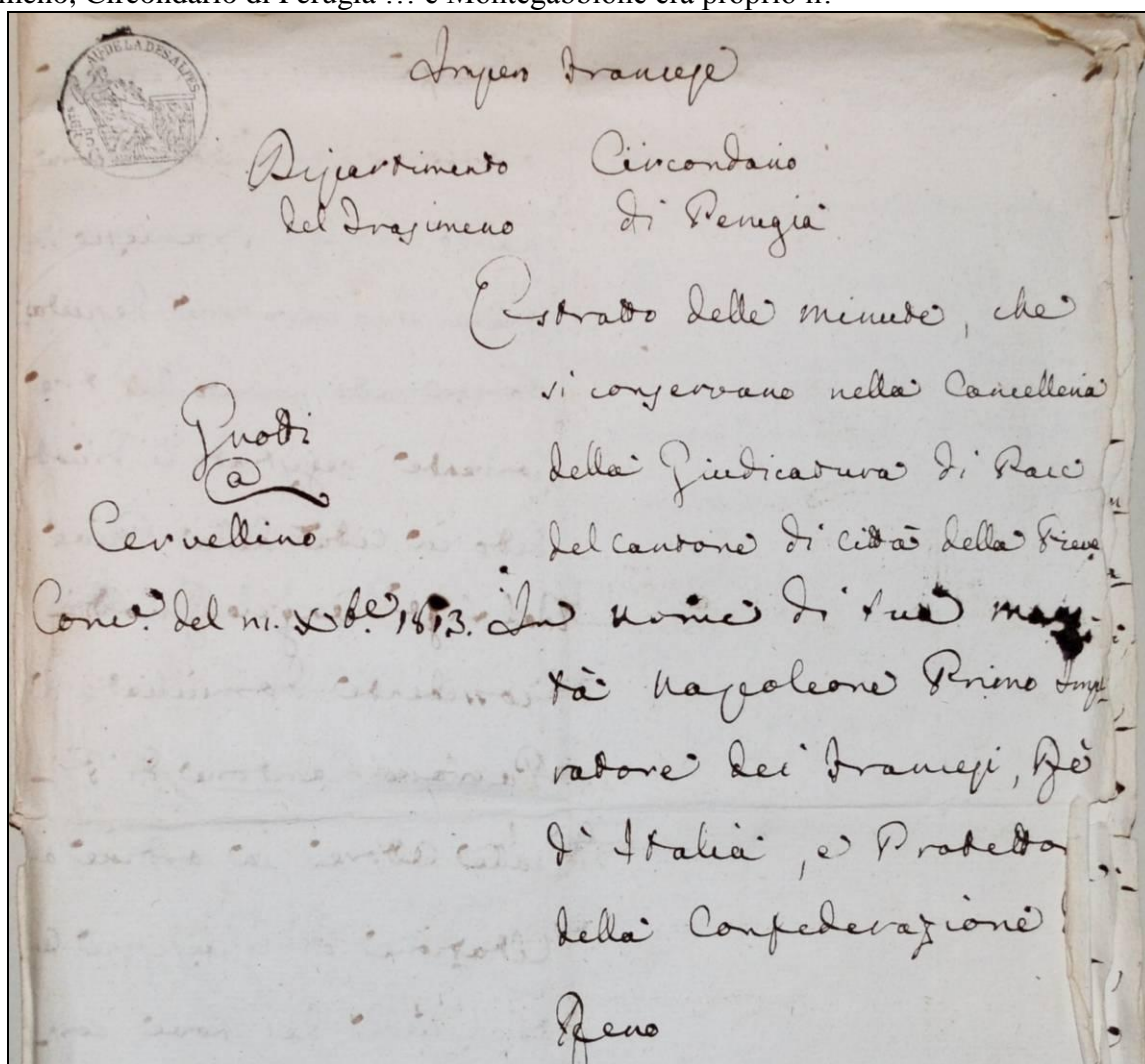 meno, Circondario di Perugia … e Montegabbione era proprio lì.
AU-DE LA DES ALPES
Impero Francese
Dipartimento Circondario
del Trasimeno di Perugia
Estratto delle minute, che
si conservano nella Cancelleria
della Giudicatura di Pace
del cantone di città della Pieve
Gnotti
a
Cervellino
Conc.e del m. Xbe. 1813. In nome di sua maes-
tà Napoleone Primo Impe
ratore dei Francesi, Rè
di Italia, e Protettor
della Confederazione
Reno